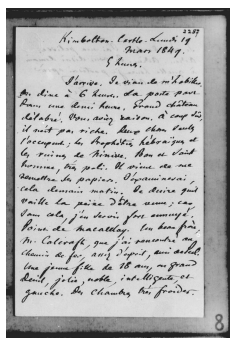 2287
Kimbolton-Castle-Lundi 19
Mars 1849.
5 heures.
J'arrive. Je viens de m'habiller
on dîne à 6 heures. La poste part
dans une demi heure. Grand château
délabré. Vous aviez raison. A coup sûr,
il n'est pas riche. Deux choses seules
l'occupent, les Prophéties hébraïques et
les ruines de Ninive. Bon et
homme très poli. Il vient de me
remettre les papiers. J'examinerai
cela demain matin. Je désire qu'il
vaille la peine d'être venu; car
sans cela, j'en serois fort ennuyé.
Point de Macaulay. Un beau frère,
M. Calcraft, que j'ai rencontré au
chemin de fer, assez d'esprit,
Une jeune fille de 18 ans, en grand
deuil, jolie, noble, intelligente et
gauche. Des chambres très froides.
8